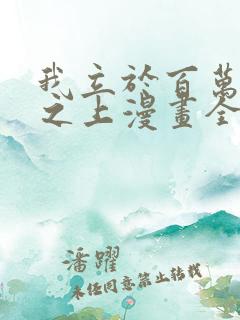 我立於百萬
之上漫畫全
潘躍
未经同意禁止转载